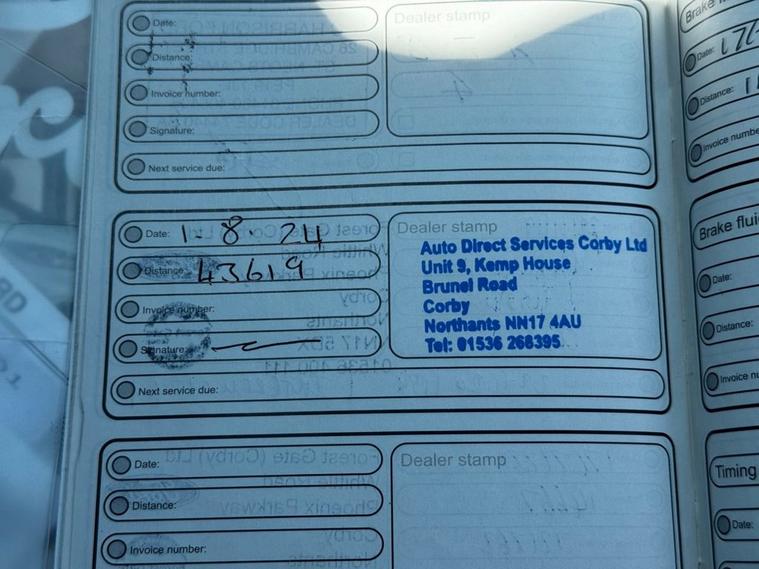 Date:
Distance:
Invoice number:
Signature:
Next service due:
Dealer stamp
Date: 1-8-24
Distance: 43619
Invoice number:
Signature:
Next service due:
Dealer stamp
Auto Direct Services Corby Ltd
Unit 9, Kemp House
Brunel Road
Corby
Northants NN17 4AU
Tel: 01536 268395
Date:
Distance:
Invoice number:
Dealer stamp
Brake
Date:
Distance:
Invoice numbe
Brake flui
Date:
Distance:
Invoice nu
Timing
Date: